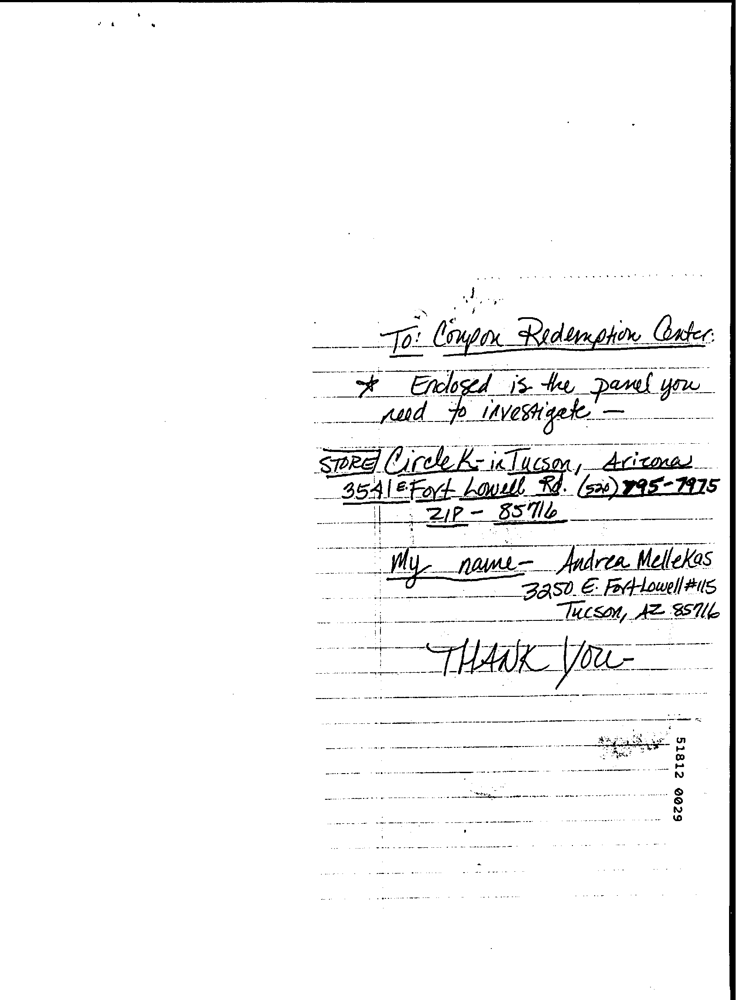 To: Coupon Redemption Center:
* Enclosed is the panel you
need to investigate —
STORE Circle K - in Tucson, Arizona
3541 E. Fort Lowell Rd. (520) 795-7975
ZIP - 85716
My name - Andrea Mellekas
3250 E. Fort Lowell #115
Tucson, AZ 85716
THANK YOU -
51812 0029